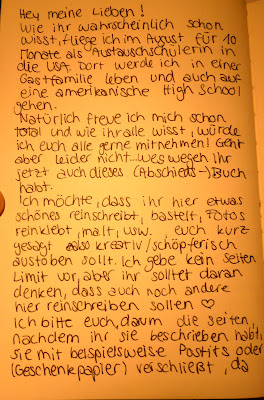 Hey meine Lieben!
Wie ihr wahrscheinlich schon
wisst, fliege ich im August für 10
Monate als Austauschschülerin in
die USA. Dort werde ich in einer
Gastfamilie leben und auch auf
eine amerikanische High School
gehen.
Natürlich freue ich mich schon
total und wie ihr alle wisst, würde
ich euch alle gerne mitnehmen! Geht
aber leider nicht... weswegen ihr
jetzt auch dieses (Abschieds-)Buch
habt.
Ich möchte, dass ihr hier etwas
schönes reinschreibt, bastelt, Fotos
reinklebt, malt, usw. euch kurz
gesagt also kreativ/schöpferisch
austoben sollt. Ich gebe kein Seiten
Limit vor, aber ihr solltet daran
denken, dass auch noch andere
hier reinschreiben sollen ♡
Ich bitte euch, darum die Seiten,
nachdem ihr sie beschrieben habt,
sie mit beispielsweise Postits oder
(Geschenkpapier) verschließt, da